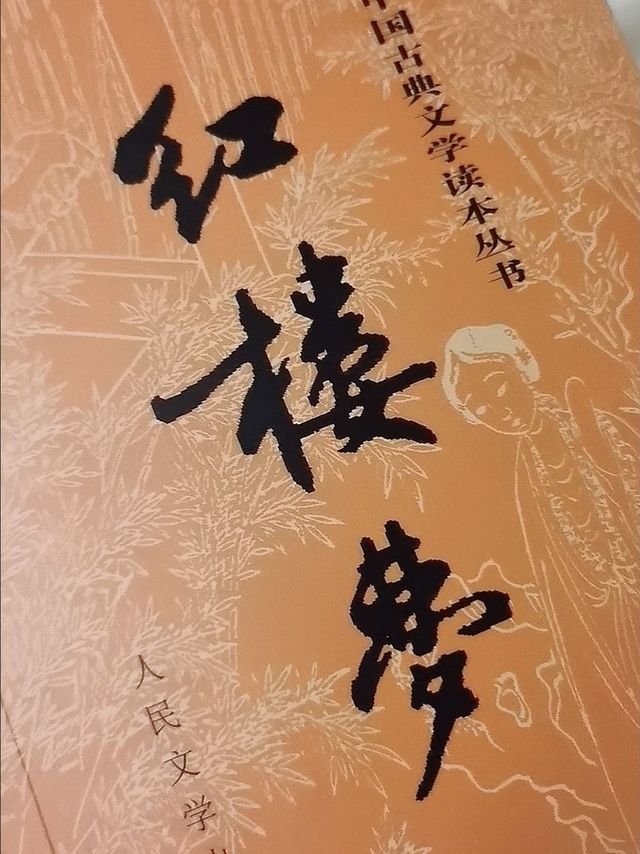 中国古典文学读本丛书
红楼梦
人民文学